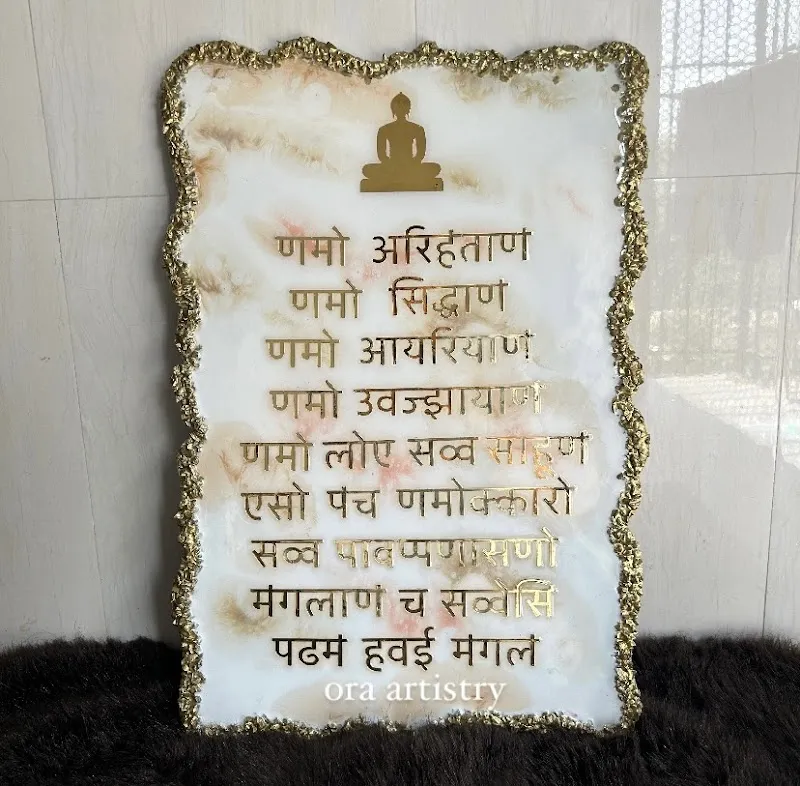 णमो अरिहंताणं
णमो सिद्धाणं
णमो आयरियाणं
णमो उवज्झायाणं
णमो लोए सव्व साहूणं
एसो पंच णमोक्कारो
सव्व पावप्पणासणो
मंगलाणं च सव्वेसिं
पढमं हवई मंगलं
ora artistry